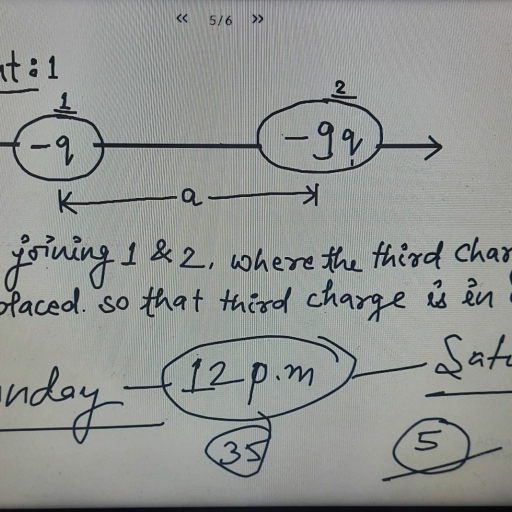 « 5/6 »
nt: 1
1 2
-q -9q
a
joining 1 & 2, where the third char
placed. so that third charge is in
nday 12 p.m Satu
35 5